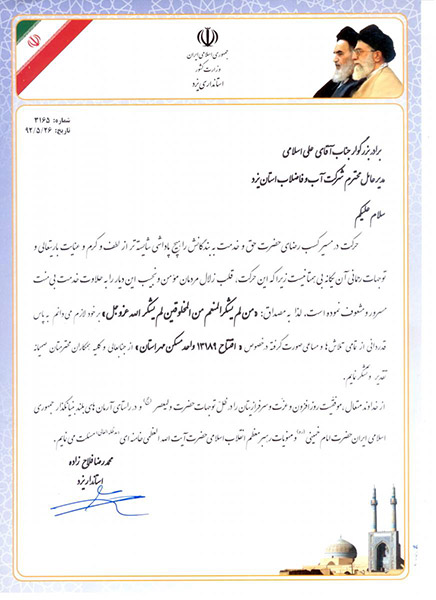 جمهوری اسلامی ایران
وزارت کشور
استانداری یزد
شماره: ۳۱۶۵
تاریخ: ۹۲/۵/۲۶
برادر بزرگوار جناب آقای علی اسلامی
مدیر عامل محترم شرکت آب و فاضلاب استان یزد
سلام علیکم
حرکت در مسیر کسب رضای حضرت حق و خدمت به بندگانش را هیچ پاداشی شایسته تر از لطف و کرم و عنایت باریتعالی و
توجهات رحمانی آن یگانه بی همتا نیست زیرا که این حرکت، قلب زلال مردمان مؤمن و نجیب این دیار را به حلاوت خدمت بی منت
مسرور و مشعوف نموده است. لذا به مصداق: «من لم یشکر المنعم من المخلوقین لم یشکر الله عزوجل» بر خود لازم می دانم به پاس
قدردانی از تمامی تلاش ها و مساعی صورت گرفته در خصوص « افتتاح ۱۳۱۸۹ واحد مسکن مهر استان » از جنابعالی و کلیه همکاران محترمتان صمیمانه
تقدیر و تشکر نمایم.
از خداوند متعال، موفقیت روز افزون و عزت و سرفرازیتان را در ظل توجهات حضرت ولیعصر (عج) و در راستای آرمان های بلند بنیانگذار جمهوری
اسلامی ایران حضرت امام خمینی (ره) و منویات رهبر معظم انقلاب اسلامی حضرت آیت الله العظمی خامنه ای مسئلت می نمایم.
محمد رضا فلاح زاده
استاندار یزد